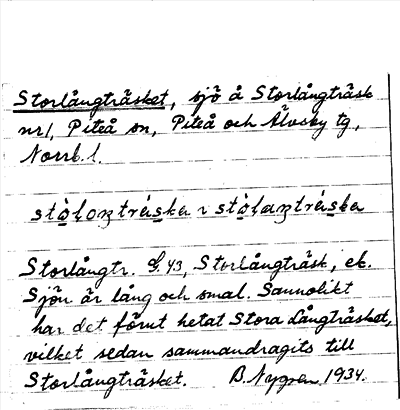 Storlångträsket, sjö å Storlångträsk
nr1, Piteå sn, Piteå och Älvsby tg,
Norrb. l.
Storlångtr. G.43, Storlångträsk, ek.
Sjön är lång och smal. Sannolikt
har det förut hetat Stora Långträsket,
vilket sedan sammandragits till
Storlångträsket. B. Nygren 1934.